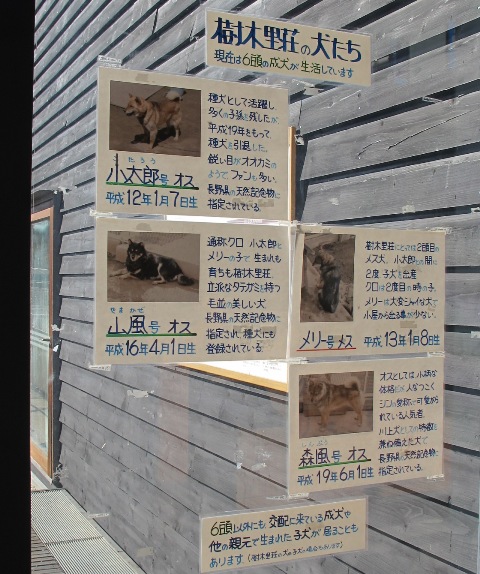 樹木里荘の犬たち
現在は6頭の成犬が生活しています
種犬として活躍し、
多くの子孫を残したが、
平成19年をもって、
種犬を引退した。
鋭い目がオオカミの
ようで、ファンも多い。
長野県の天然記念物に
指定されている。
たろう
小太郎号 オス
平成12年1月7日生
通称クロ 小太郎と
メリーの子で 生まれも
育ちも樹木里荘。
立派なタテガミを持つ
毛並の美しい犬
長野県の天然記念物に
指定され、種犬にも
登録されている。
山風号 オス
平成16年4月1日生
樹木里荘にとっては2頭目の
メス犬。小太郎との間に
2度 子犬を出産
クロは2度目の時の子。
メリーは大変シャイな犬で
小屋から出る事が少ない。
メリー号 メス 平成13年1月8日生
オスとしては 小柄な
体格だが 人なつこく
シンの愛称で可愛がら
れている人気者。
川上犬としての特徴を
兼ね備えた犬で
長野県の天然記念物に
指定されている。
しんぷう
森風号 オス
平成19年6月1日生
6頭以外にも 交配に来ている成犬や
他の親元で生まれた 子犬が 居ることも
あります